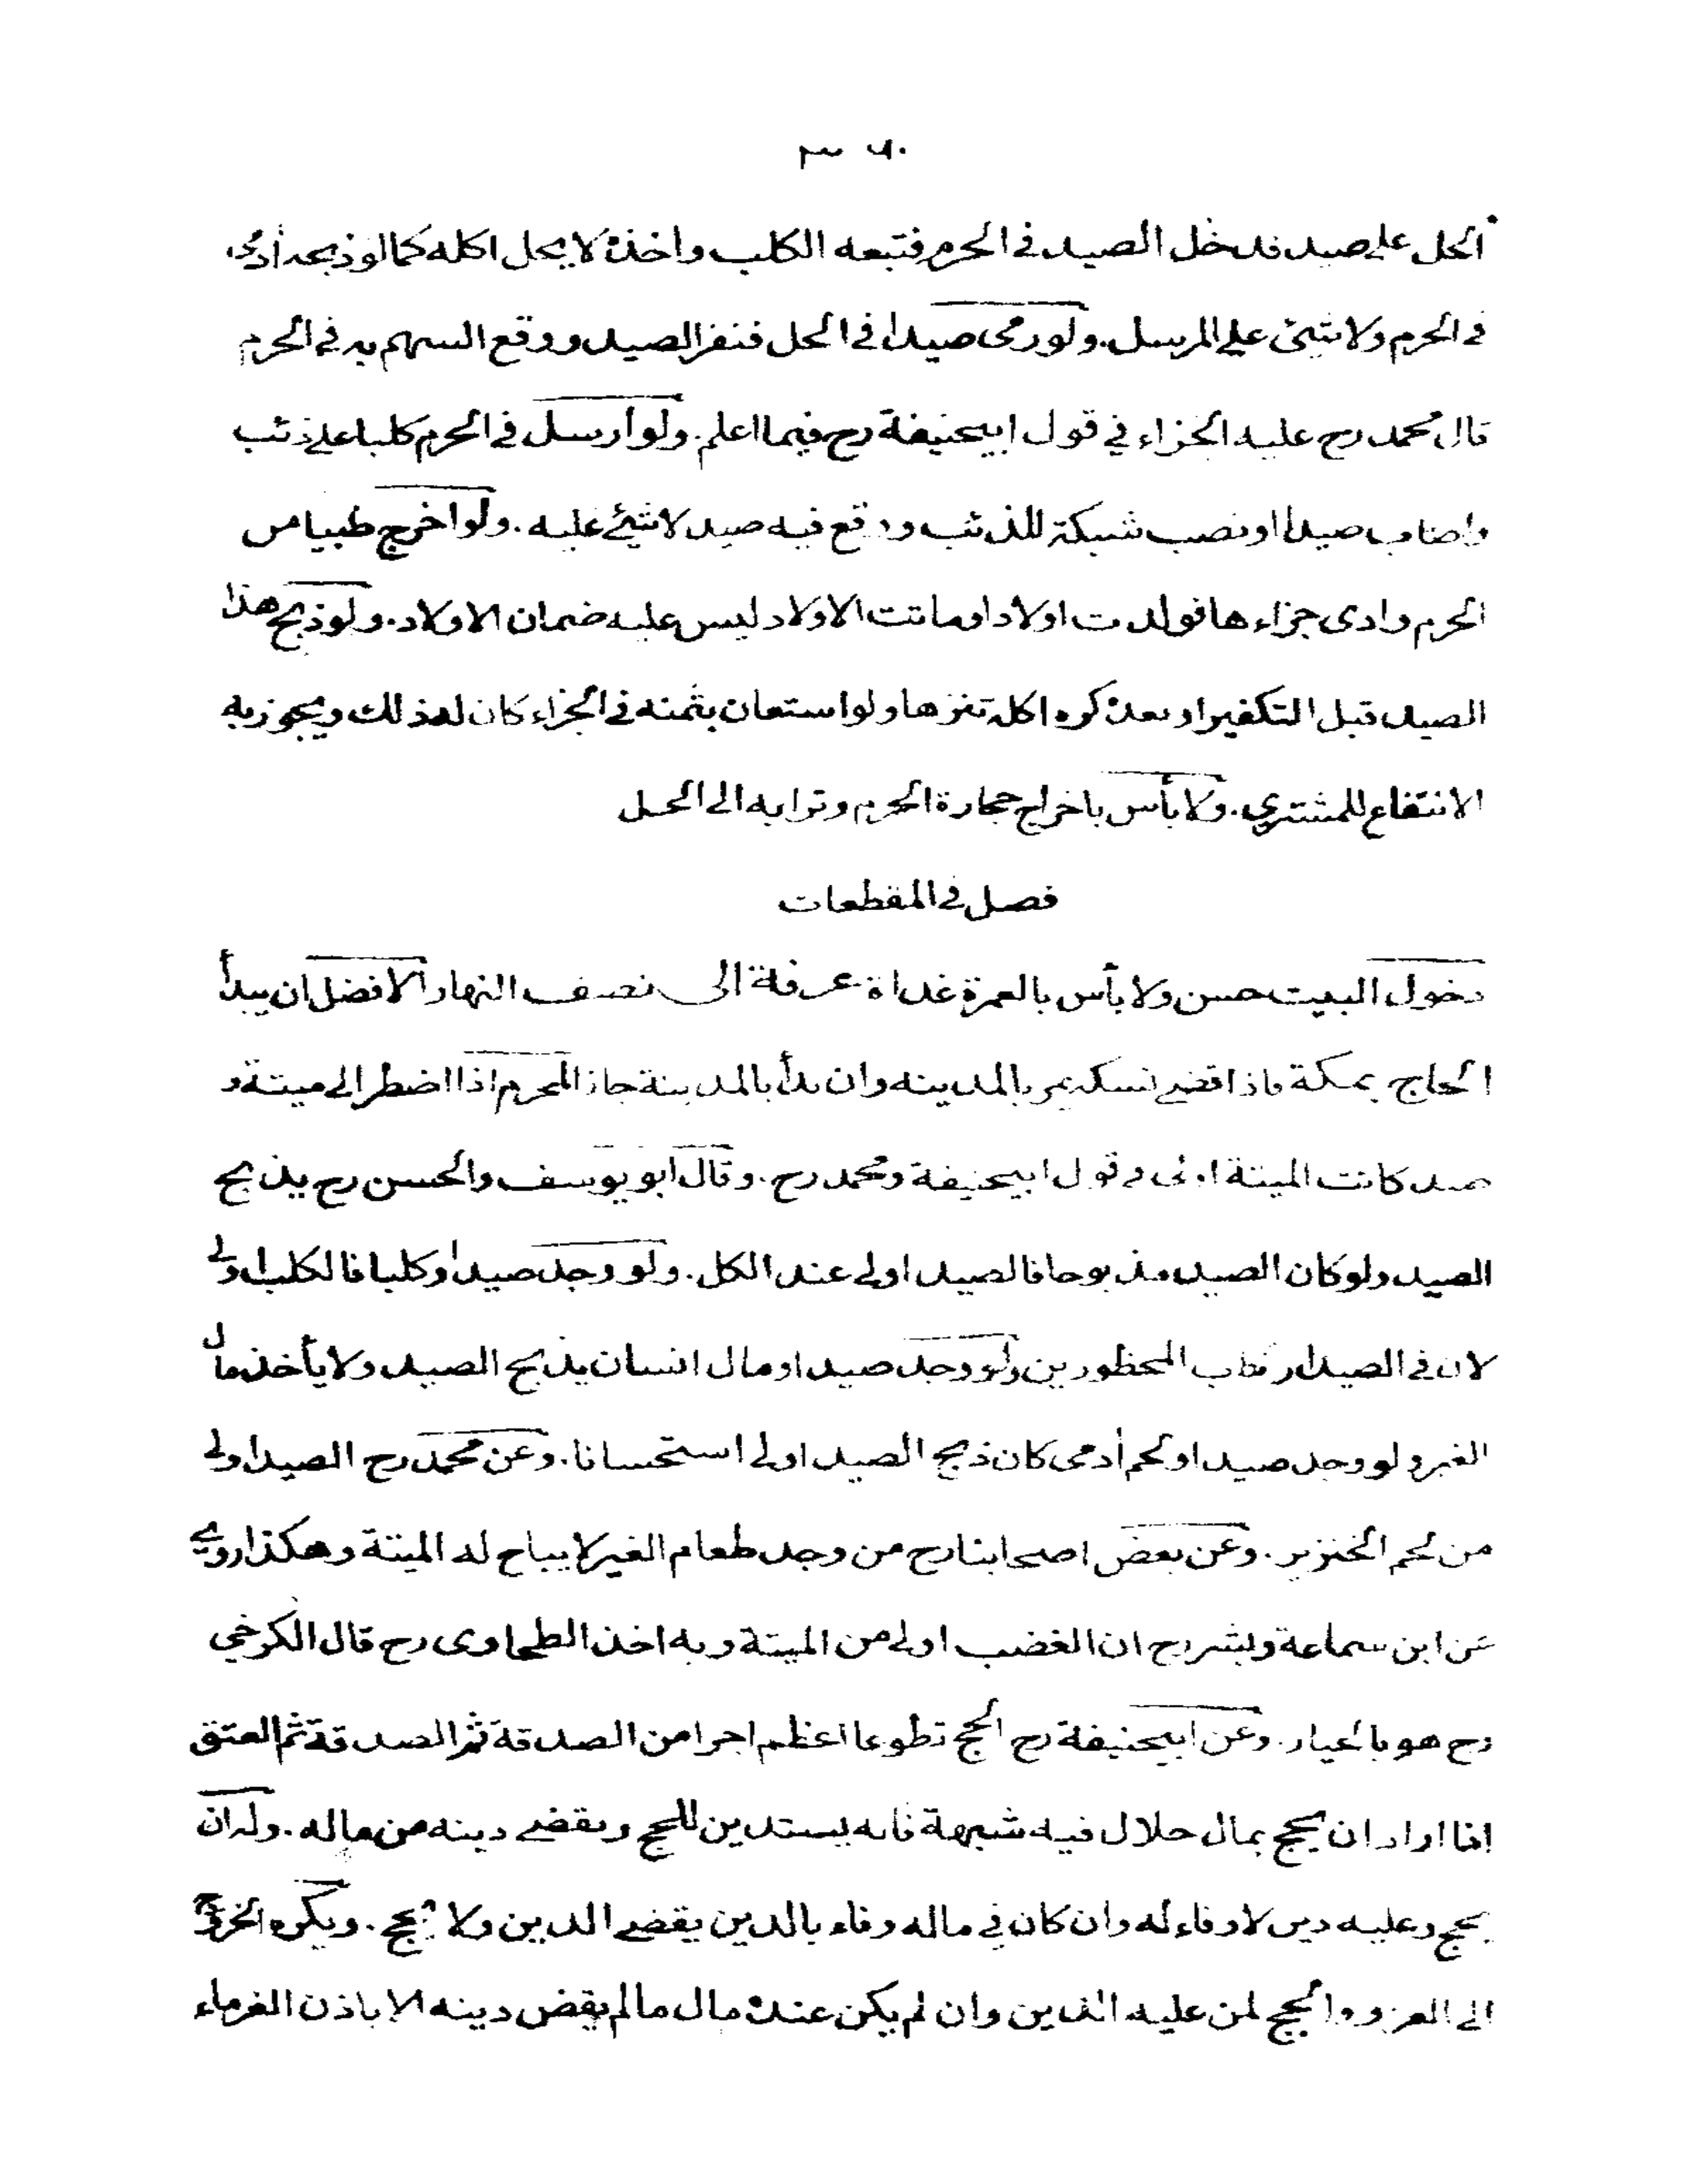 الحل على صيد فدخل الصيد في الحرم فتبعه الكلب واخذه لا يحل اكله كما لو ذبحه أدمى
في الحرم ولا شئ على المرسل. ولو رمى صيدا في الحل فنفر الصيد ووقع السهم به في الحرم
قال محمد رح عليه الجزاء في قول ابيحنيفة رح فيما اعلم. ولو ارسل في الحرم كلبا على ذئب
واصاب صيدا او نصب شبكة للذئب ووقع فيه صيد لا شئ عليه. ولو اخرج ظبيا من
الحرم وادى جزاءها فولدت اولادا وماتت الاولاد ليس عليه ضمان الاولاد. ولو ذبح هذا
الصيد قبل التكفير او بعده كره اكله تنزها ولو استعان بثمنه في الجزاء كان له ذلك ويجوز به
الانتفاع للمشتري. ولا بأس باخراج حجارة الحرم وترابه الى الحل
فصل في المقطعات
دخول البيت حسن ولا بأس بالعمرة غداة عرفة الى نصف النهار الافضل ان يبدأ
الحاج بمكة فاذا قضى نسكه يمر بالمدينه وان بدأ بالمدينة جاز المحرم اذا اضطر الى ميتة و
صيد كانت الميتة اولى في قول ابيحنيفة ومحمد رح. وقال ابو يوسف والحسن رح يذبح
الصيد ولو كان الصيد مذبوحا فالصيد اولى عند الكل. ولو وجد صيدا وكلبا فالكلب اولى
لان في الصيد ارتكاب المحظورين ولو وجد صيدا او مال انسان يذبح الصيد ولا يأخذ مال
الغير ولو وجد صيدا او لحم أدمى كان ذبح الصيد اولى استحسانا. وعن محمد رح الصيد اولى
من لحم الخنزير. وعن بعض اصحابنا رح من وجد طعام الغير لا يباح له الميتة وهكذا روي
عن ابن سماعة وبشر رح ان الغضب اولى من الميتة وبه اخذ الطحاوى رح قال الكرخي
رح هو بالخيار. وعن ابيحنيفة رح الحج تطوعا اعظم اجرا من الصدقة ثم الصدقة ثم العتق
اذا اراد ان يحج بمال حلال فيه شبهة فانه يستدين للحج ويقضى دينه من ماله. وله ان
يحج وعليه دين لا وفاء له وان كان في ماله وفاء بالدين يقضى الدين ولا يحج. ويكره الخروج
الى الغزو والحج لمن عليه الدين وان لم يكن عنده مال ما لم يقض دينه الا باذن الغرماء